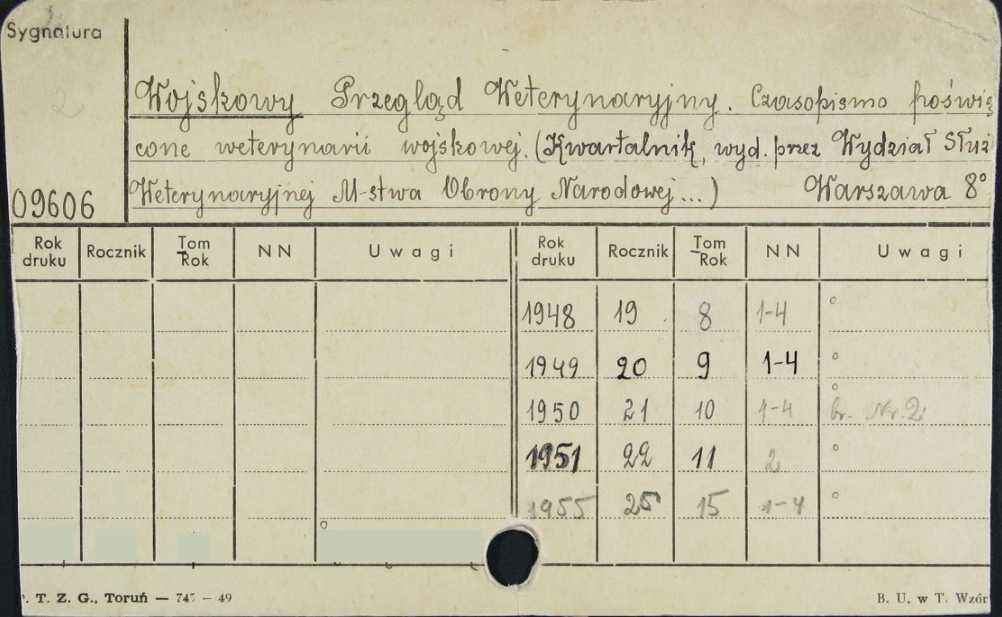 Sygnatura
Wojskowy Przegląd Weterynaryjny. Czasopismo poświę
cone weterynarii wojskowej. (Kwartalnik, wyd. przez Wydział Służ
09606 Weterynaryjnej M-stwa Obrony Narodowej...) Warszawa 8°
Rok druku Rocznik Tom Rok NN Uwagi Rok druku Rocznik Tom Rok NN Uwagi
1948 19 8 1-4
1949 20 9 1-4
1950 21 10 1-4 br. Nr. 2
1951 22 11 2
1955 25 15 1-4
. T. Z. G., Toruń — 747 — 49 B. U. w T. Wzór